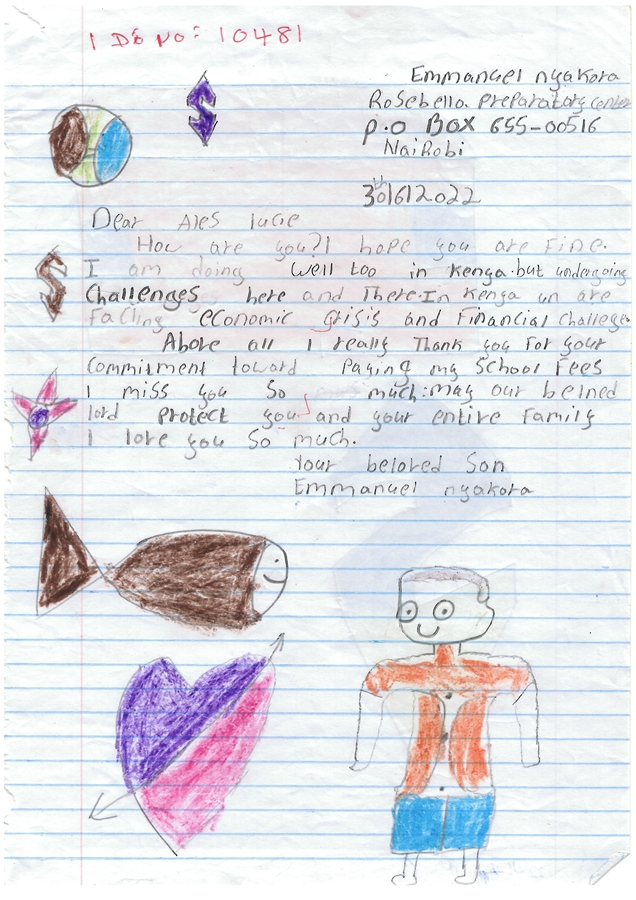 I D& NO: 10481
Emmanuel nyakora
Rosebella preparatory center
p.o BOX 655-00516
Nairobi
30/6/2022
Dear Ales lucie
How are you?I hope you are Fine.
I am doing well too in kenya.but undergoing
Challenges here and There.In kenya un are
facling economic crisis and Financial challenges
Above all I really Thank you For your
Commitment toward Paying my School Fees
I miss you so much:may our
lord protect you and your entire Family
I love you So much.
Your beloved Son
Emmanuel nyakora